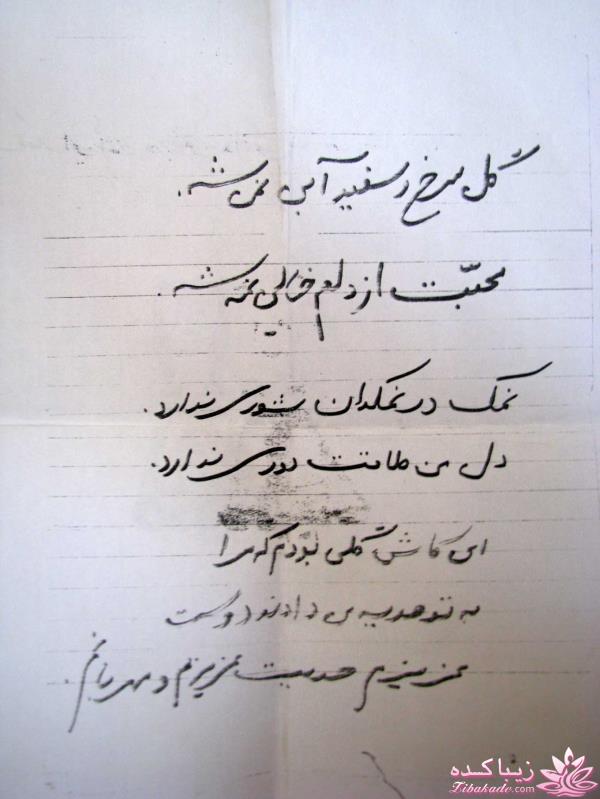 گل سرخ و سفید آبی نمی شه.
محبت از دلم خالی نمی شه.
نمک در نمکدان شوری ندارد.
دل من طاقت دوری ندارد.
ای کاش گلی بودم که مرا
به تو هدیه می دادند دوست
عزیزم حدیث عزیزم و مهربانم.
زیباکده
Zibakade.com